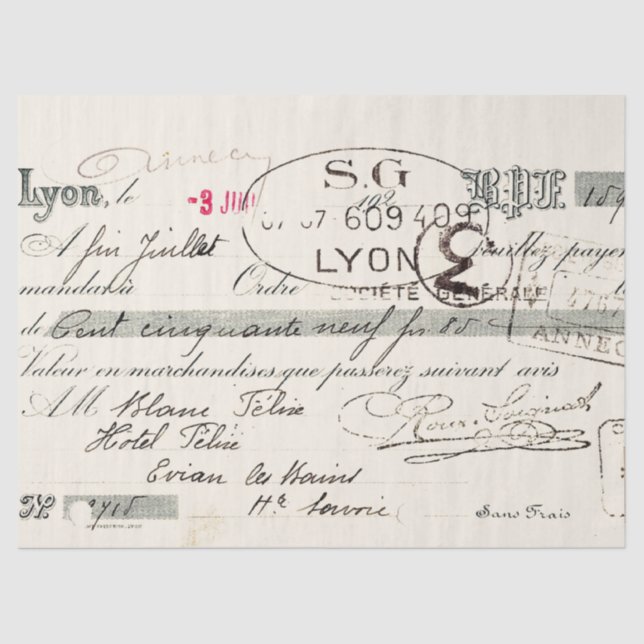 Annecy
Lyon, le -3 JUI 192 B.P.F. 159
S.G
07 67 609 409
LYON
SOCIÉTÉ GÉNÉRALE
A fin Juillet Veuillez payer
mandat à Ordre
4767
ANNEC
de Cent cinquante neuf frs 80
Valeur en marchandises que passerez suivant avis
A M Blanc Félix
Hôtel Félix
Evian les Bains
Hte Savoie
No 9718
Sans Frais